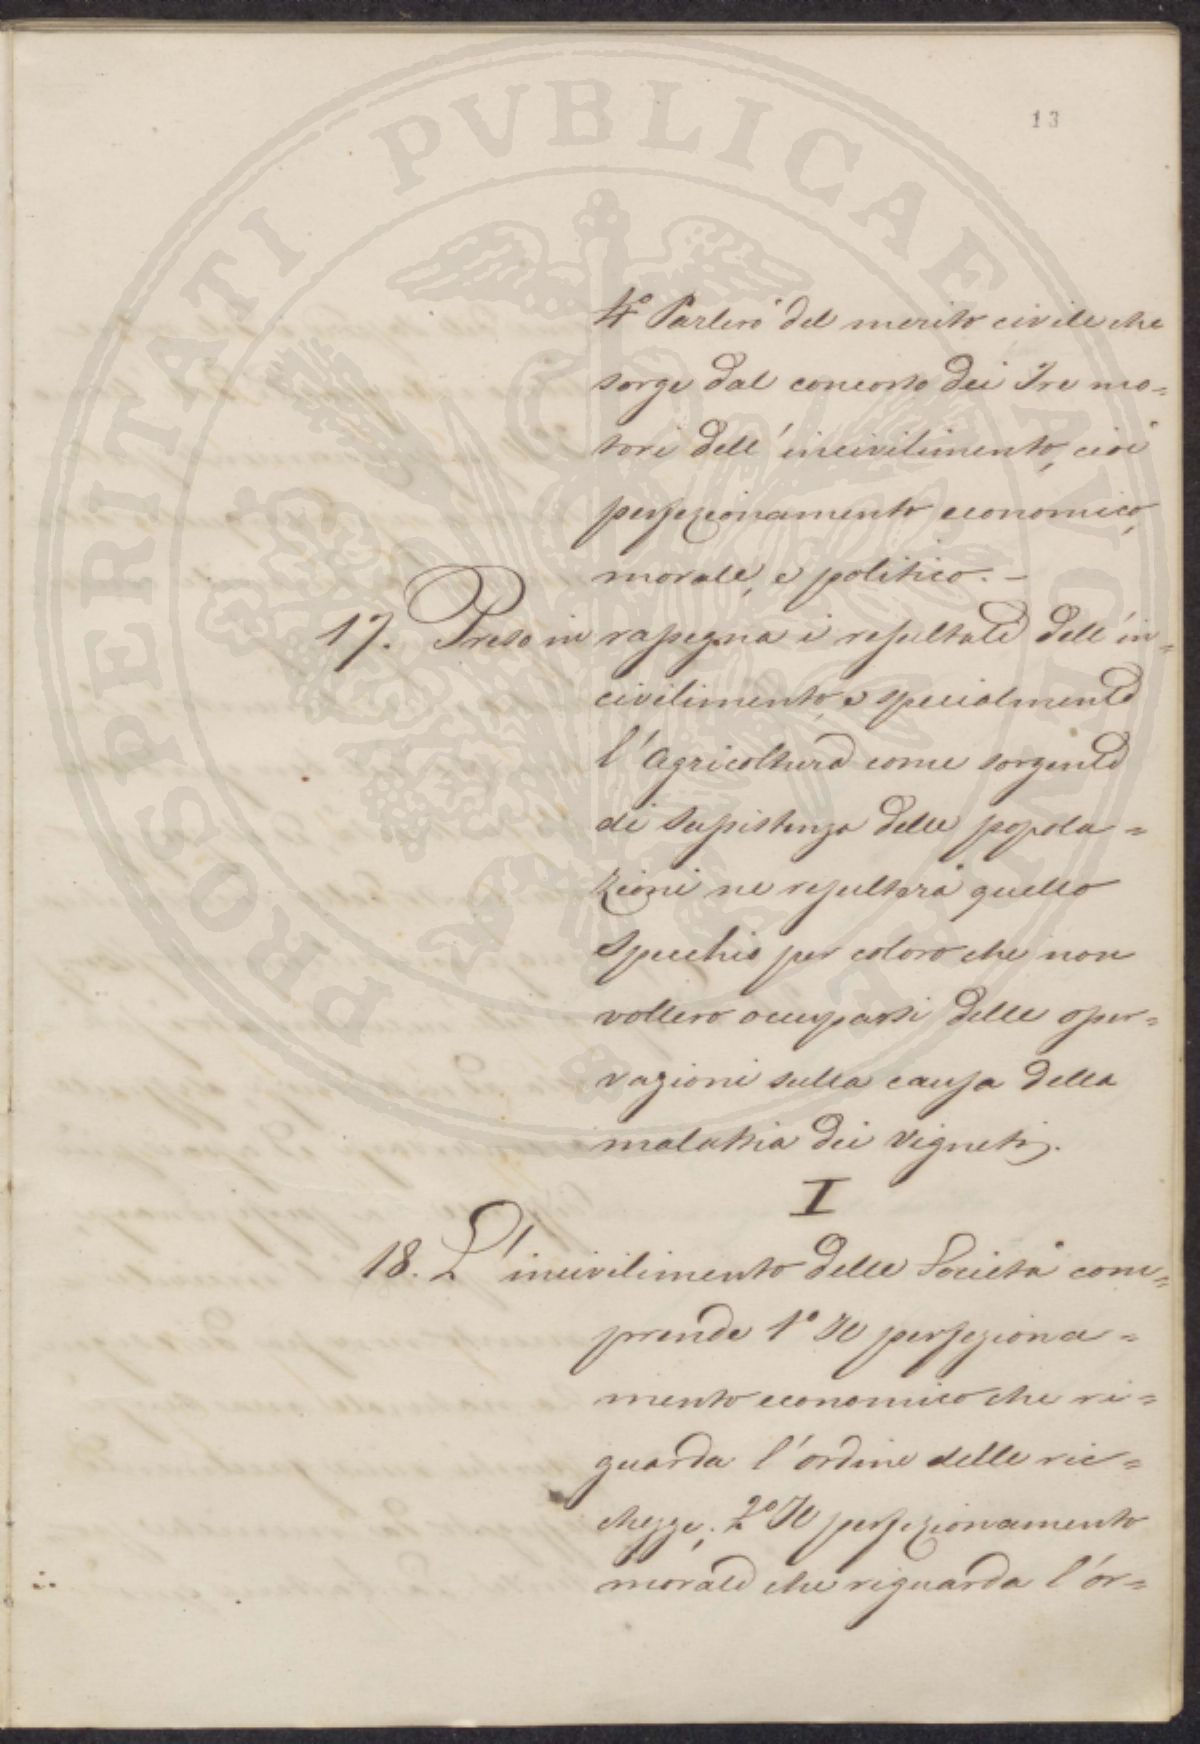 13
4° Parlerò del merito civile che
sorge dal concorso dei Tre mo=
tori dell'incivilimento, cioè
perfezionamento economico,
morale, e politico. –
17. Preso in rassegna i resultati dell'in=
civilimento, e specialmente
l'Agricoltura come sorgente
di sussistenza delle popola=
zioni ne resulterà quello
specchio per coloro che non
vollero occuparsi delle osser=
vazioni sulla causa della
malattia dei Vigneti.
I
18. L'incivilimento delle Società com=
prende 1° Il perfeziona=
mento economico che ri=
guarda l'ordine delle ric=
chezze; 2° Il perfezionamento
morale che riguarda l'or=
PROSPERITATI PVBLICAE AVGENDAE